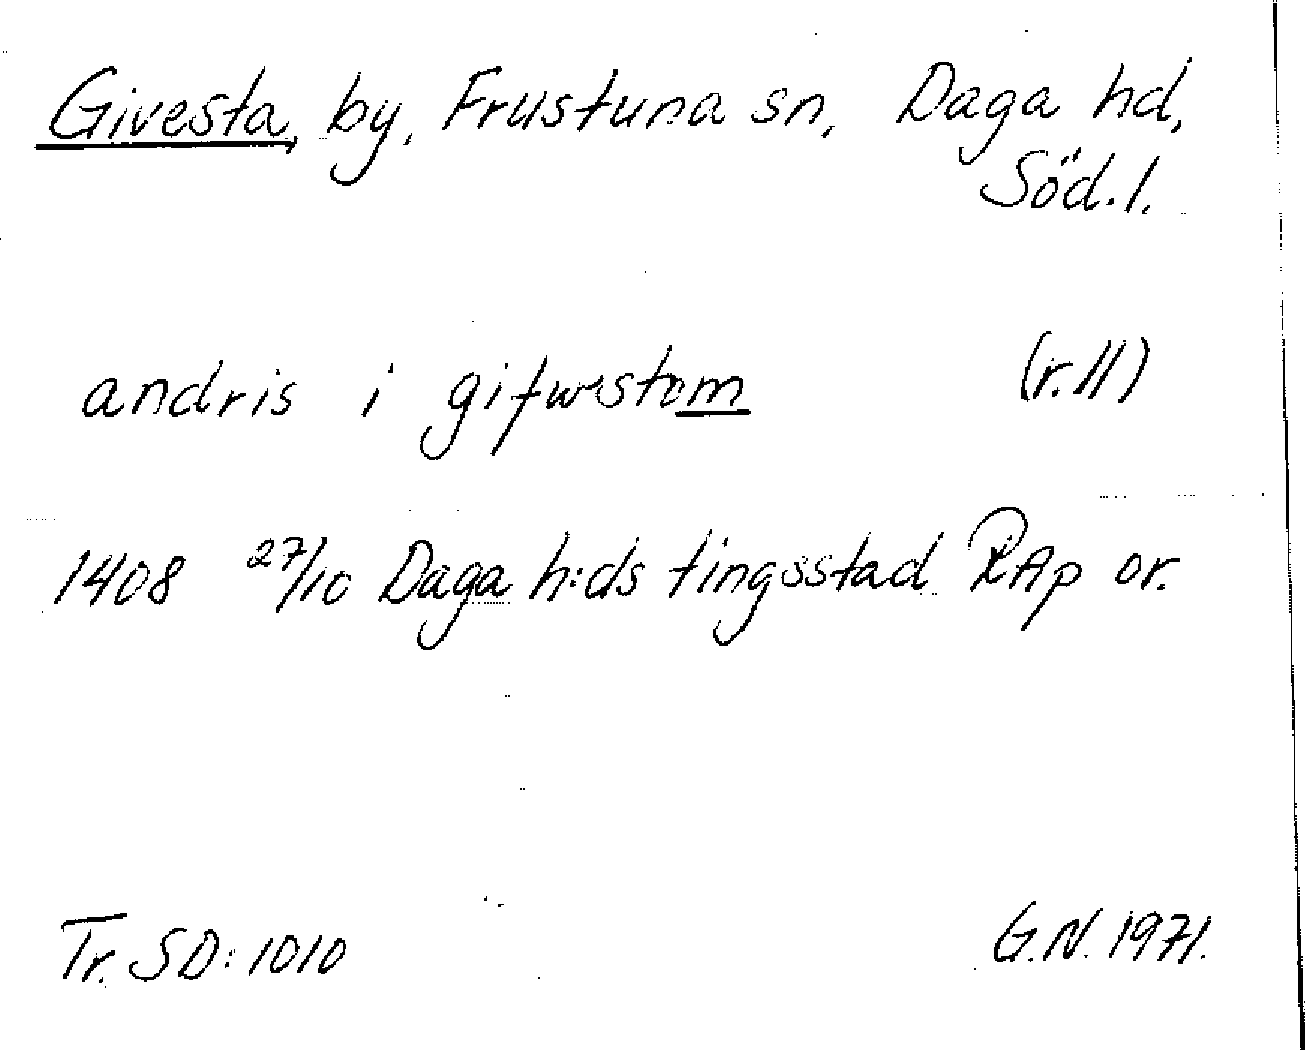 Givesta, by, Frustuna sn, Daga hd,
Söd.l.
andris i gifwestom (r.11)
1408 27/10 Daga h:ds tingsstad RAp or.
Tr. SD: 1010 G.N. 1971.